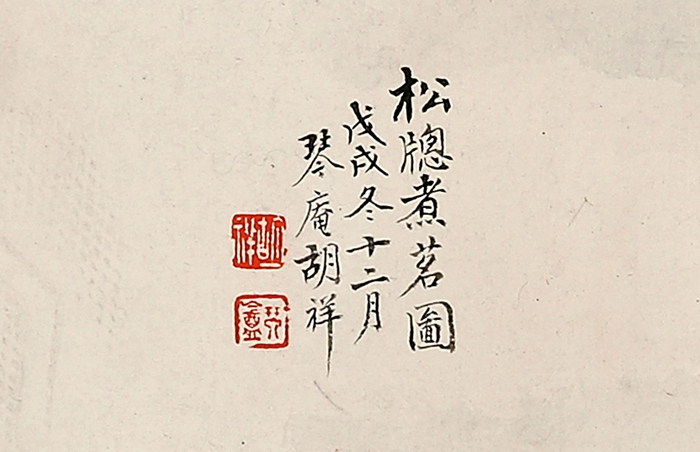 松牕煮茗圖
戊戌冬十二月
琴庵胡祥
胡祥